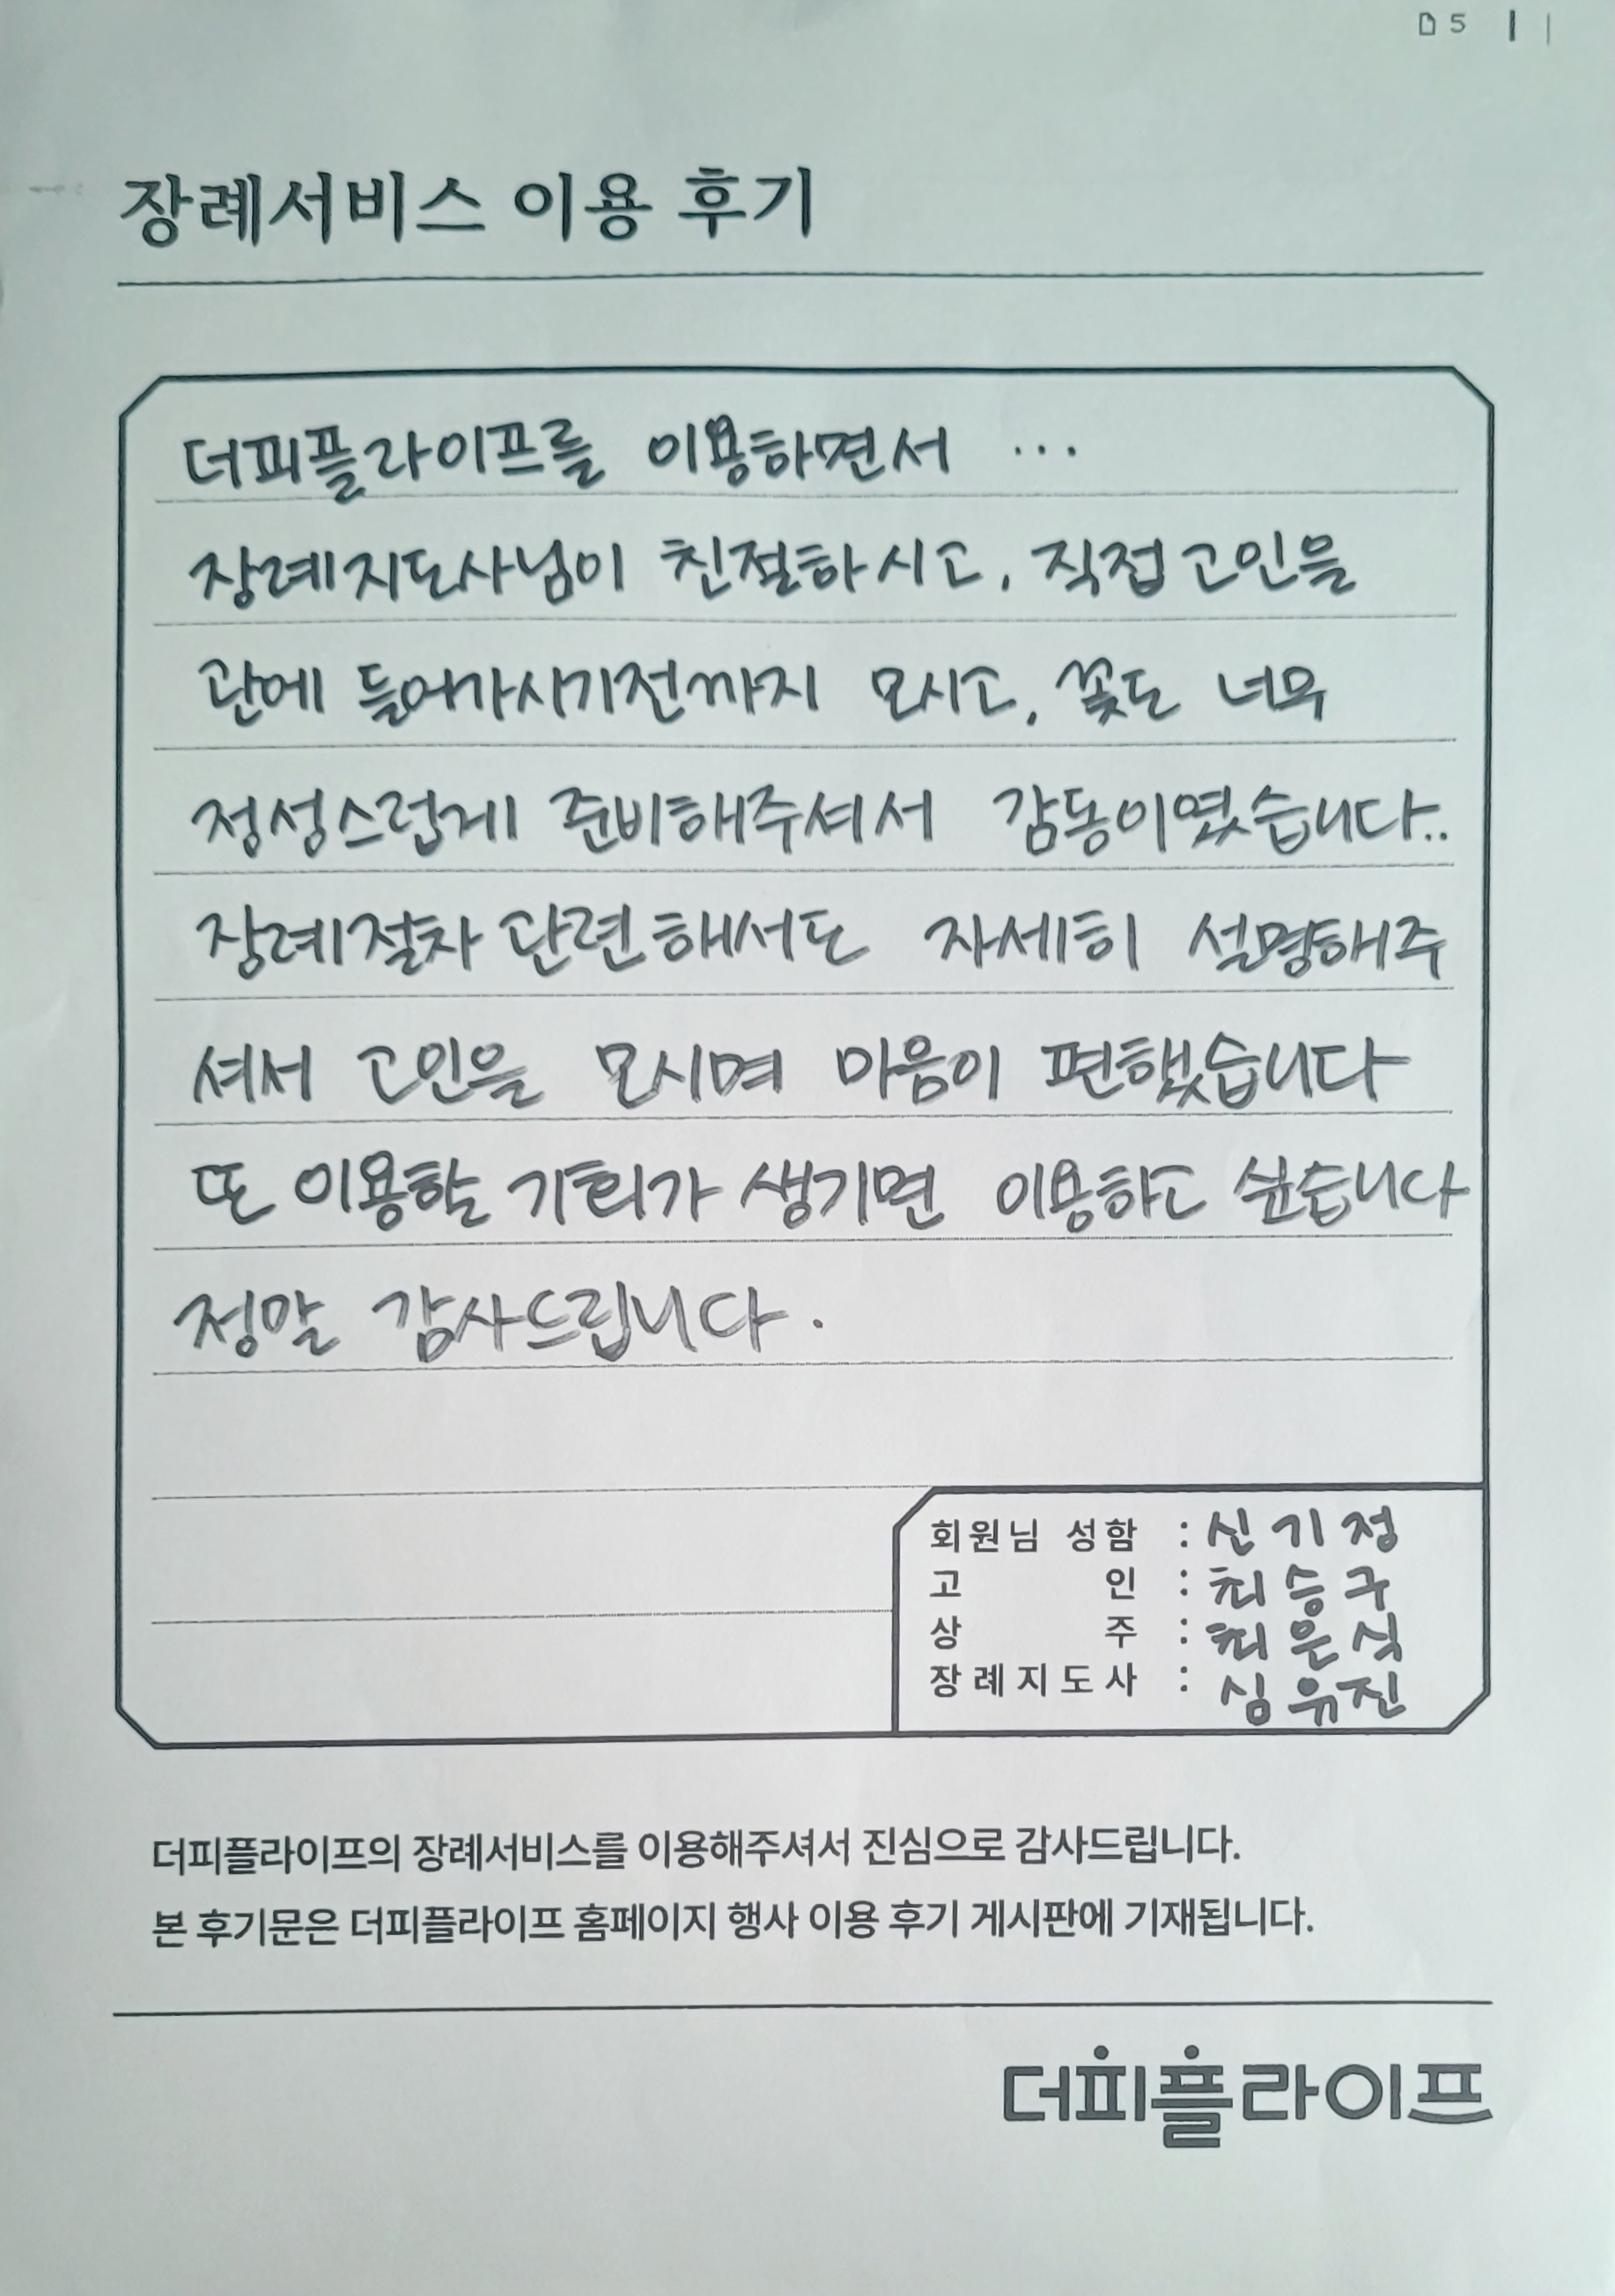 장례서비스 이용 후기
더피플라이프를 이용하면서 ...
장례지도사님이 친절하시고, 직접 고인을
관에 들어가시기전까지 모시고, 꽃도 너무
정성스럽게 준비해주셔서 감동이였습니다..
장례절차 관련해서도 자세히 설명해주
셔서 고인을 모시며 마음이 편했습니다
또 이용할 기회가 생기면 이용하고 싶습니다
정말 감사드립니다.
회원님 성함 : 신기정
고 인 : 최승구
상 주 : 최은식
장례지도사 : 심유진
더피플라이프의 장례서비스를 이용해주셔서 진심으로 감사드립니다.
본 후기문은 더피플라이프 홈페이지 행사 이용 후기 게시판에 기재됩니다.
더피플라이프